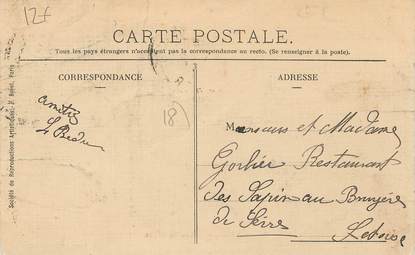 12f
CARTE POSTALE.
Tous les pays étrangers n'acceptent pas la correspondance au recto. (Se renseigner à la poste).
CORRESPONDANCE
ADRESSE
amitiés
18)
Monsieur et Madame
Gorlier Restaurant
des Sapin au Bruyère
de
Société de Reproductions Artistiques, Paris